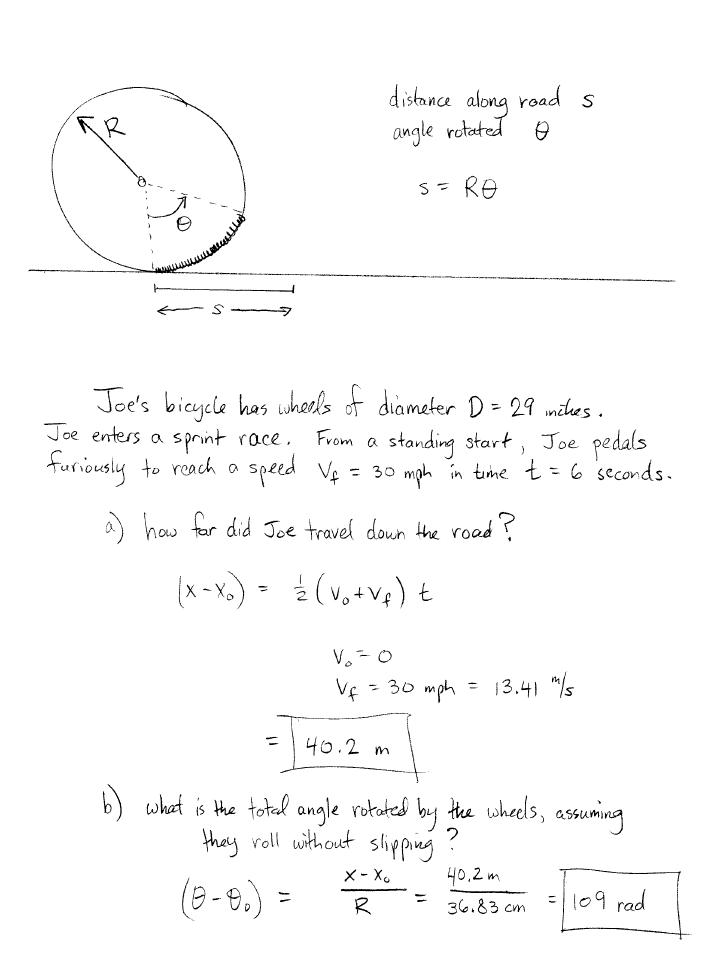 R
θ
s
distance along road s
angle rotated θ
s = Rθ
Joe's bicycle has wheels of diameter D = 29 inches.
Joe enters a sprint race. From a standing start, Joe pedals
furiously to reach a speed V_f = 30 mph in time t = 6 seconds.
a) how far did Joe travel down the road?
(x - x₀) = ½ (v₀ + v_f) t
V₀ = 0
V_f = 30 mph = 13.41 m/s
= 40.2 m
b) what is the total angle rotated by the wheels, assuming
they roll without slipping?
(θ - θ₀) = x - x₀ / R = 40.2 m / 36.83 cm = 109 rad